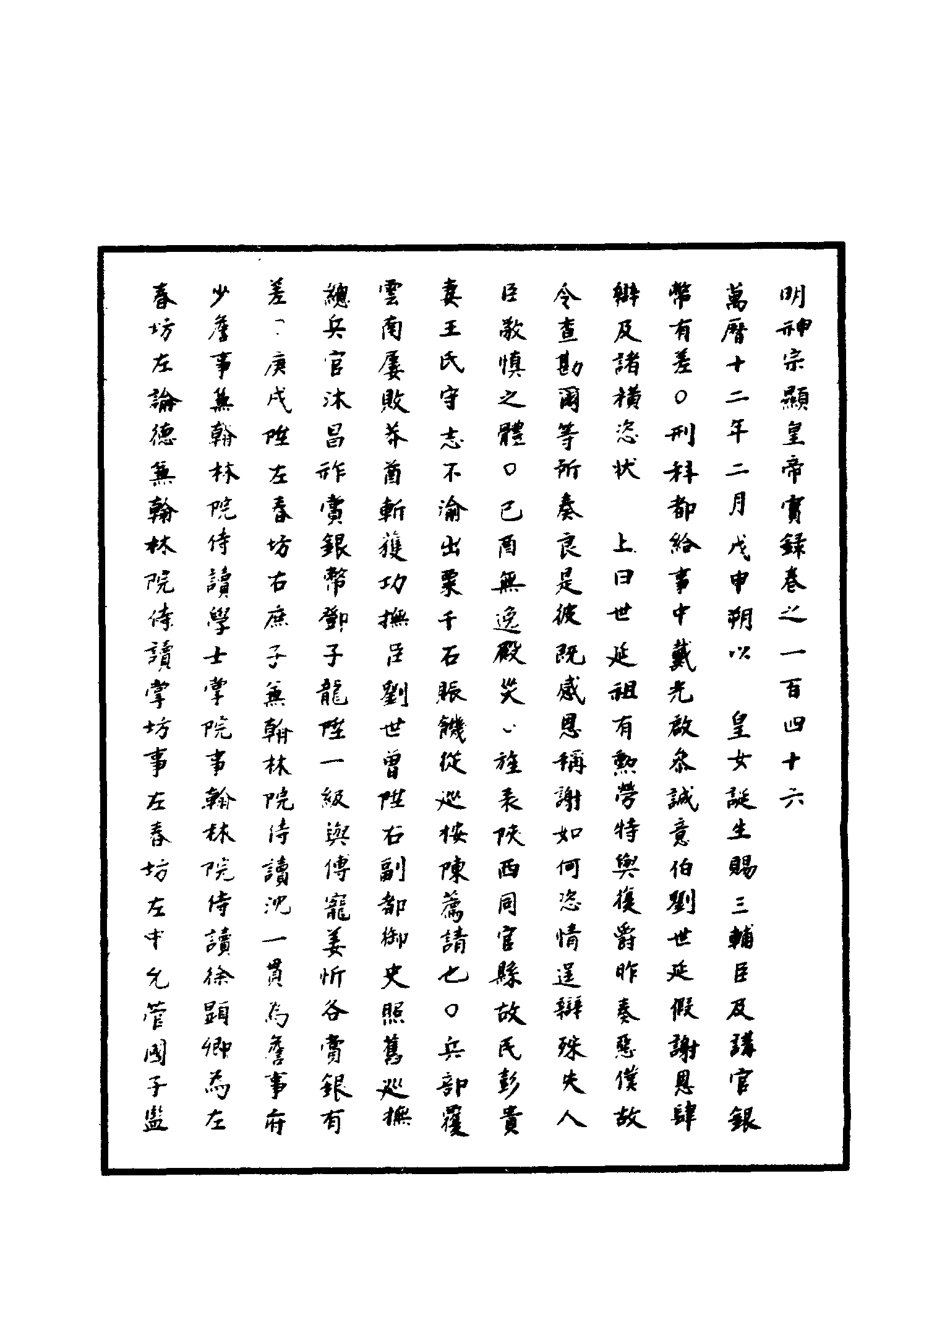 明神宗顯皇帝實録卷之一百四十六
萬曆十二年二月戊申朔以　皇女誕生賜三輔臣及講官銀
幣有差○刑科都給事中戴光啟叅誠意伯劉世延假謝恩肆
辯及諸橫恣狀　上曰世延祖有勲勞特與復爵昨奏惡僕故
令查勘爾等所奏良是彼既感恩稱謝如何恣情逞辯殊失人
臣敬慎之體○己酉無逸殿災、旌表陝西同官縣故民彭貴
妻王氏守志不渝出粟千石賑饑從巡按陳薦請也○兵部覆
雲南屢敗莽酋斬獲功撫臣劉世曾陞右副都御史照舊巡撫
總兵官沐昌祚賞銀幣鄧子龍陞一級與傅寵姜忻各賞銀有
差、庚戌陞左春坊右庶子兼翰林院侍讀沈一貫為詹事府
少詹事兼翰林院侍讀學士掌院事翰林院侍讀徐顯卿為左
春坊左諭德兼翰林院侍讀掌坊事左春坊左中允管國子監